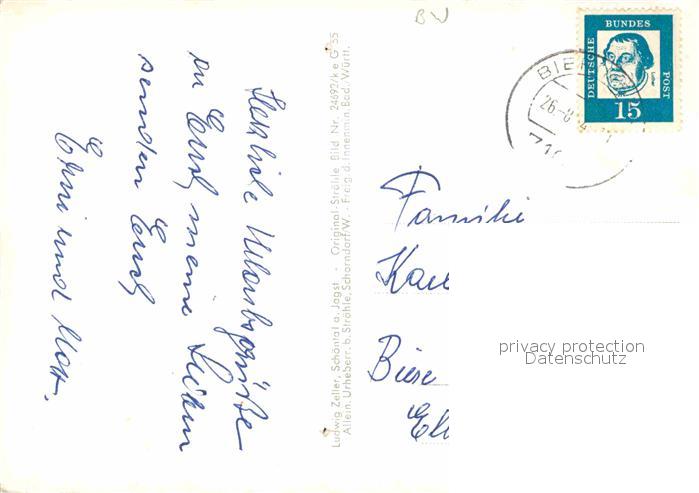 BW
DEUTSCHE
BUNDES
POST
15
BIE
26-8
71
Herzliche Urlaubsgrüße
an Euch meine Lieben
senden Euch
Erni und
Ludwig Zeller, Schöntal a. Jagst - Original-Ströhle Bild Nr. 24692/k e G 55
Allein. Urheberr. b. Ströhle, Schorndorf/W. - Freig. d. Innenmin. Bad.-Württ.
Familie
Kar
Biese
El
privacy protection
Datenschutz